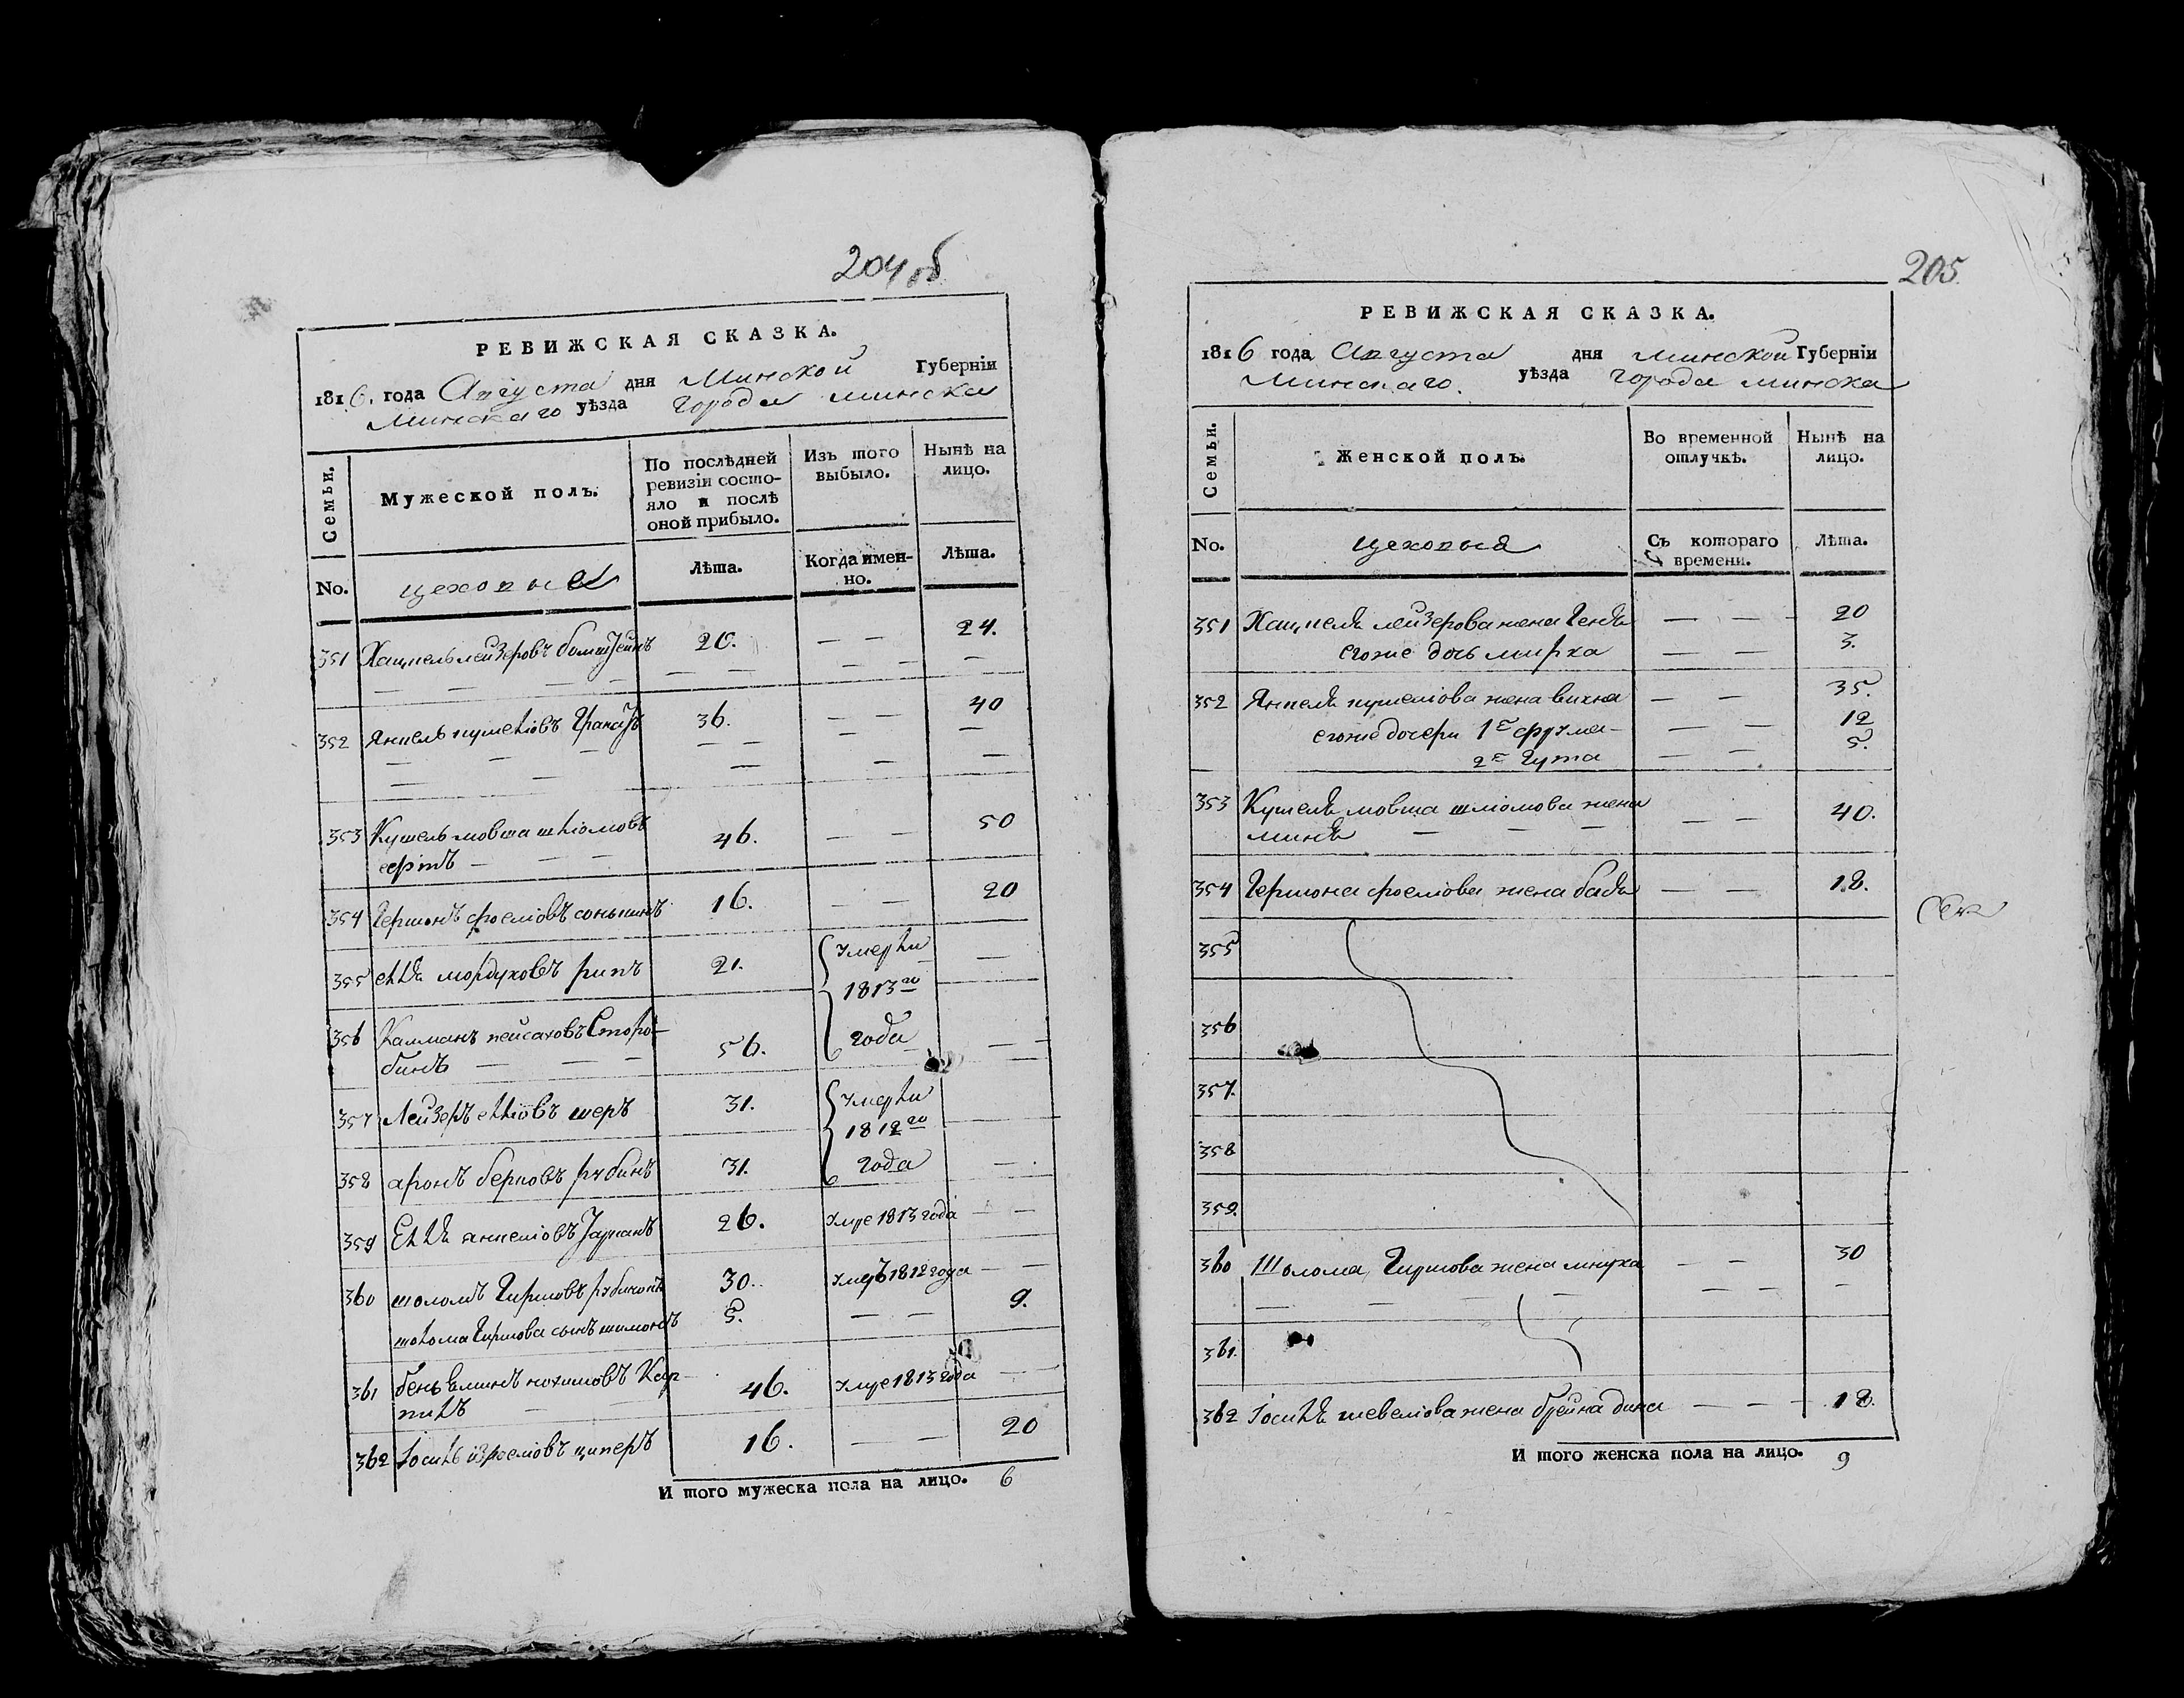 204 об
РЕВИЖСКАЯ СКАЗКА.
1816. года Августа дня Минской Губерніи
Минскаго уѣзда города минска
Семьи.
Мужеской полъ.
По послѣдней ревизіи состояло и послѣ оной прибыло.
Изъ того выбыло.
Нынѣ на лицо.
No.
цеховые
Лѣта.
Когда именно.
Лѣта.
351 Хацкель лейзеровъ 20. — — 24.
352 Янкель кушеліовъ 36. — — 40
353 Кушель мовша шліомовъ 46. — — 50
354 Гершонъ сроеліовъ 16. — — 20
355 еллѣ мордуховъ 21. умерли —
1813го
356 Калманъ пейсаховъ Сторо-
бинъ — — 56. года — —
357 Лейзеръ елліовъ шеръ 31. умерли
1812го
358 аронъ берковъ рубинъ 31. года —
359 Еллѣ янкеліовъ 26. умре 1813 года — —
360 шоломъ Гиршовъ 30. умеръ 1812 года — —
шолома Гиршова сынъ шимонъ 5. — — 9.
361 беньяминъ нохимовъ Кар-
46. умре 1813 года —
362 Іосиль ципесъ 16. — — 20
И того мужеска пола на лицо. 6
205.
РЕВИЖСКАЯ СКАЗКА.
1816 года Августа дня минской Губерніи
Минскаго. уѣзда города минска
Семьи.
Женской полъ.
Во временной отлучкѣ.
Нынѣ на лицо.
No.
цеховыя
Съ котораго времени.
Лѣта.
351 Хацкелѣ лейзерова жена Генѣ — — 20
егоже дочь мирка — — 3.
352 Янкелѣ кушеліова жена вихна — — 35.
егоже дочери 1е фрума — — 12
2е Гута — — 5.
353 Кушелѣ мовша шліомова жена
минѣ — — — — — 40.
354 Гершона сроеліова жена басѣ — — 18.
355
356
357.
358
359.
360 Шолома Гиршова жена мнуха — — 30
361.
362 Іосилѣ жена брейна дина — — 18.
И того женска пола на лицо. 9